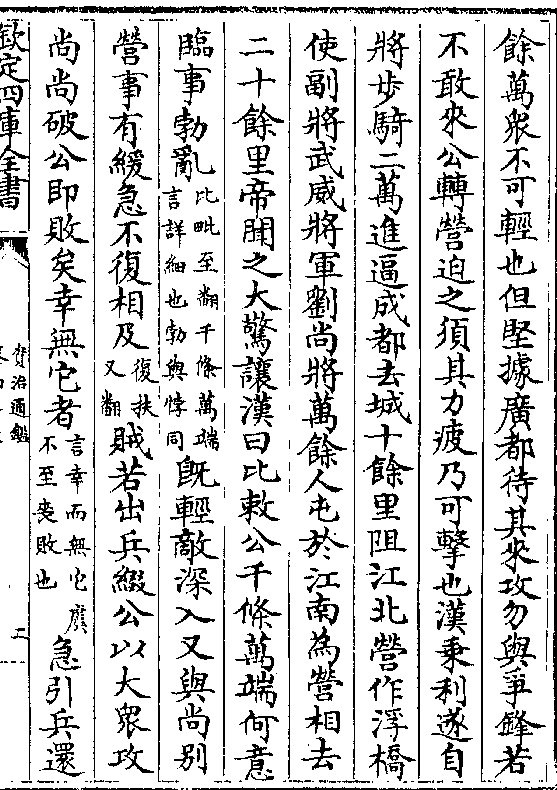 餘萬衆不可輕也但堅據廣都待其來攻勿與爭鋒若
不敢來公轉營迫之須其力疲乃可擊也漢乗利遂自
將步騎二萬進逼成都去城十餘里阻江北營作浮橋
使副將武威將軍劉尚將萬餘人屯於江南為營相去
二十餘里帝聞之大驚讓漢曰比敕公千條萬端何意
臨事勃亂比毗至翻千條萬端言詳細也勃與悖同既輕敵深入又與尚别
營事有緩急不復相及復扶又翻賊若出兵綴公以大衆攻
尚尚破公即敗矣幸無它者言幸而無它虞不至喪敗也急引兵還
欽定四庫全書
資治通鑑